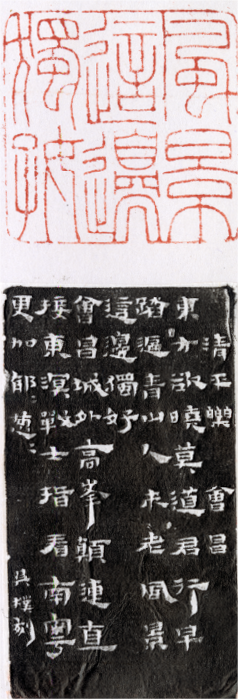 風景
這邊
獨好
清平樂 會昌
東方欲曉莫道君行早
踏遍青山人未老風景
這邊獨好
會昌城外高峯顛連直
接東溟戰士指看南粵
更加郁〻葱〻
吳樸刻